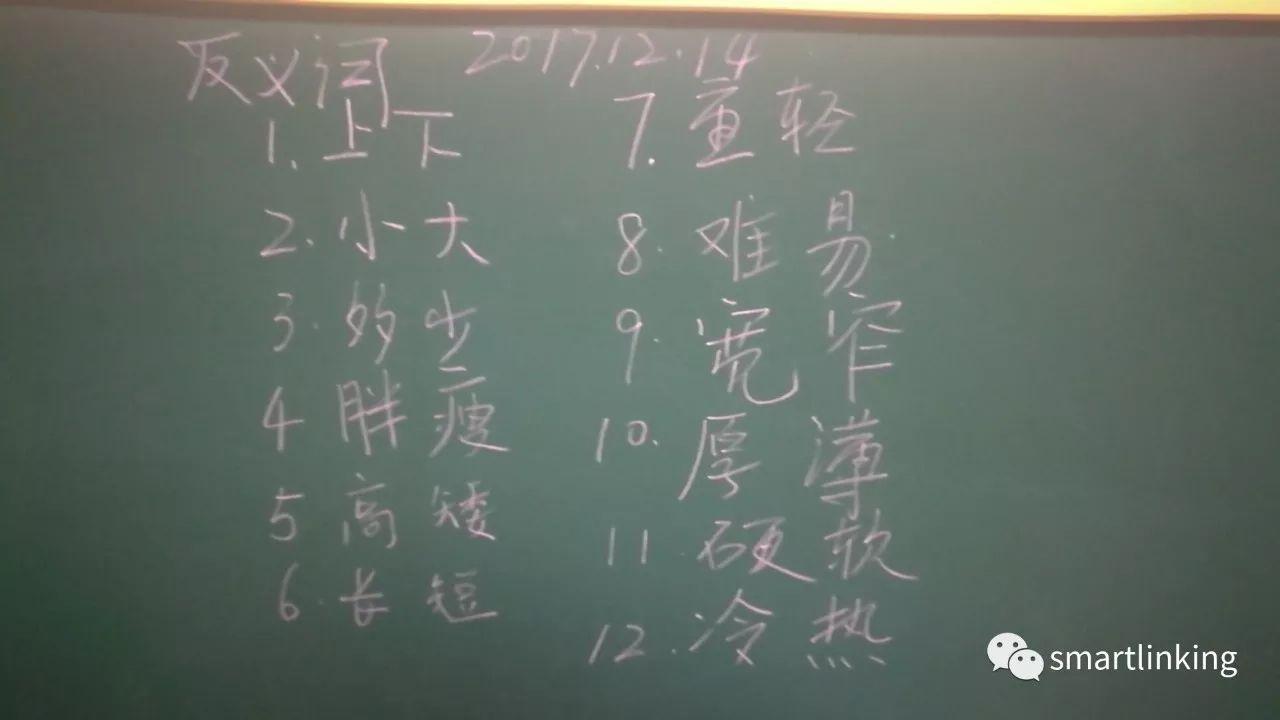 反义词 2017.12.14
1. 上 下
2. 小 大
3. 多 少
4 胖 瘦
5 高 矮
6. 长 短
7. 重 轻
8. 难 易
9. 宽 窄
10. 厚 薄
11. 硬 软
12. 冷 热
smartlinking